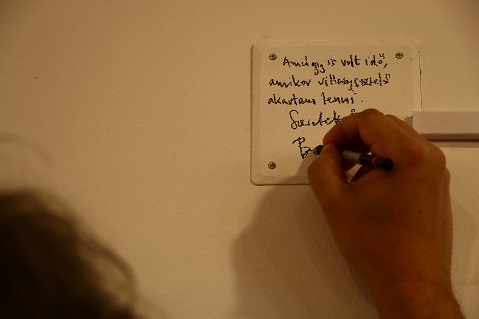 Amúgy is volt idő,
amikor villanyszerelő
akartam lenni.